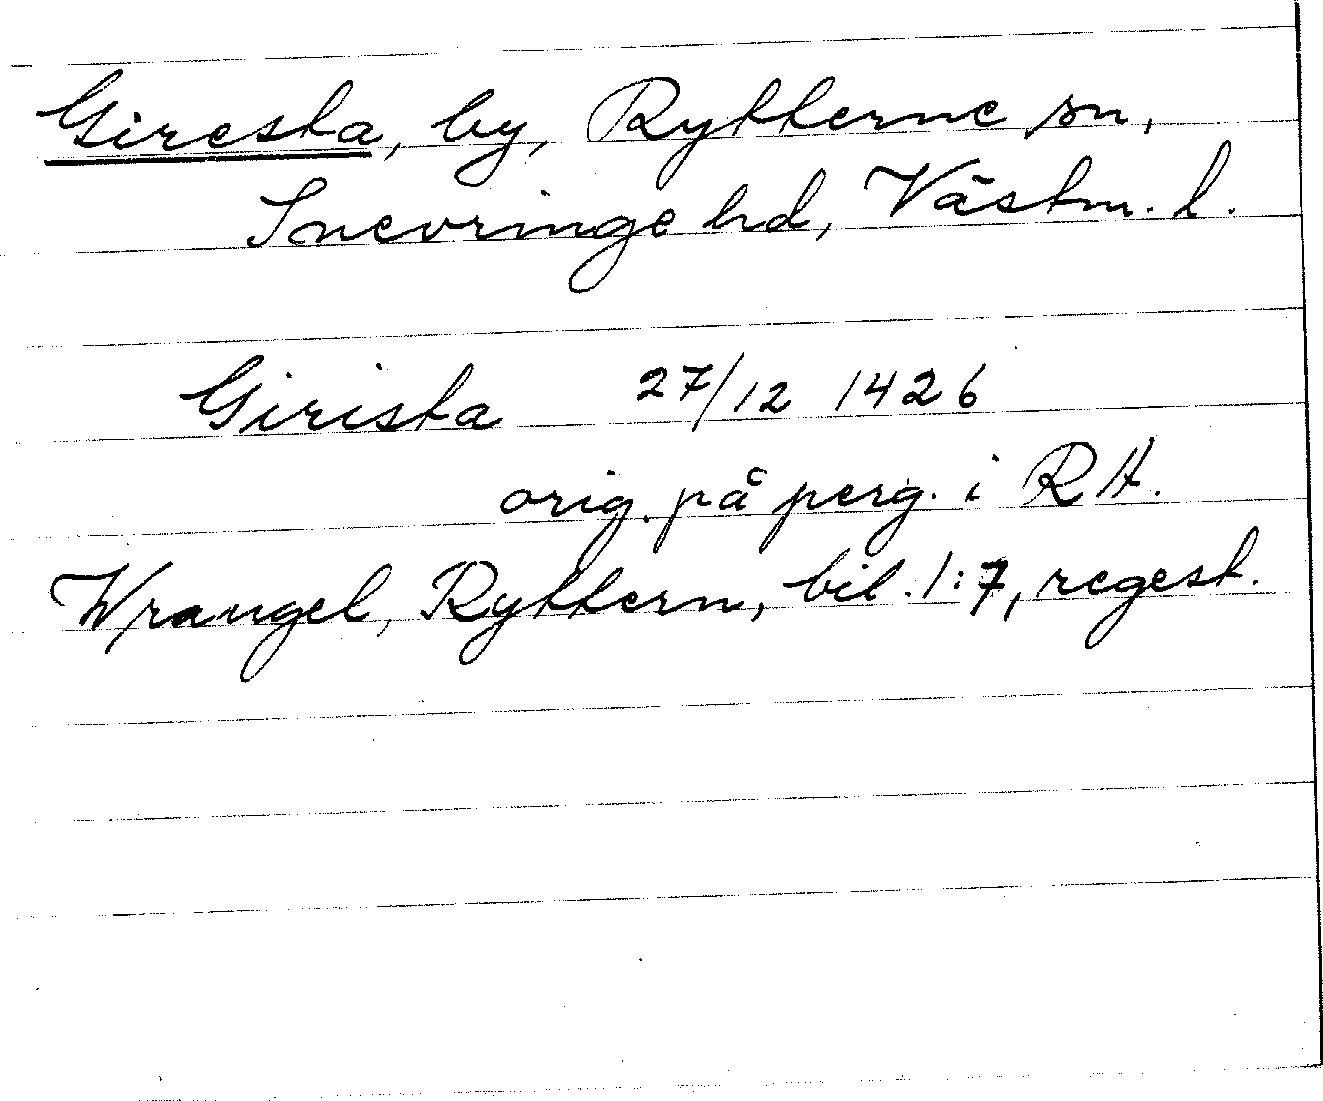 Giresta, by, Rytterne sn,
Snevringe hd, Västm. l.
Girista 27/12 1426
orig. på perg. i RA.
Wrangel, Ryttern, bil. 1:7, regest.